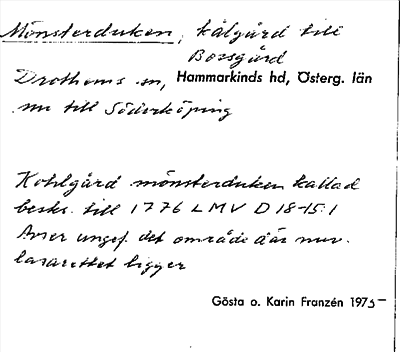 Mönsterduken, kålgård till
Bossgård
Drothems sn, Hammarkinds hd, Österg. län
nu till Söderköping
Kohlgård mönsterduken kallad
beskr. till 1776 LMV D 18-15:1
Avser ungef. det område där nuv.
lasarettet ligger
Gösta o. Karin Franzén 1975